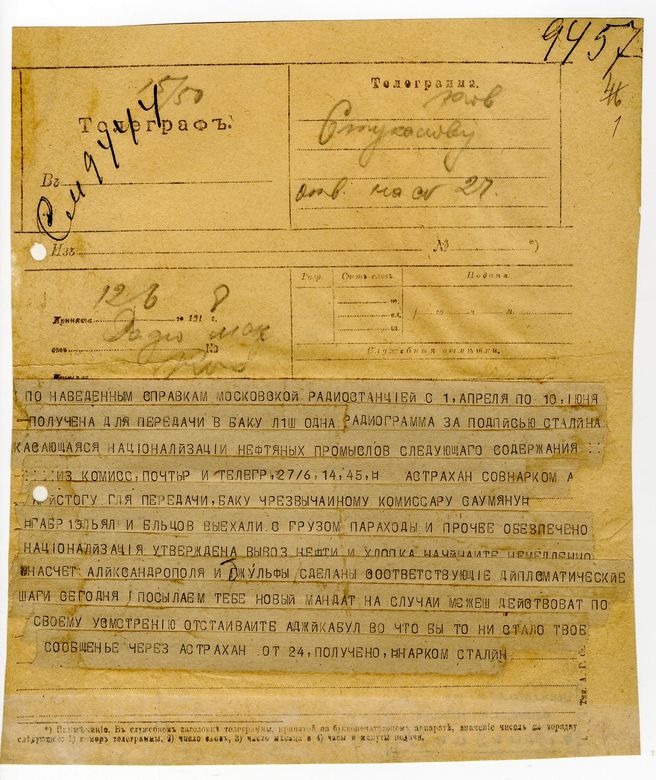 9457
15/50
Телеграфъ.
См 9444
Въ
Телеграмма.
Стукалову
27
Изъ № *)
12 8
Принята 191 г.
отъ №
Разр. Счетъ словъ. Подача.
го ч. м.
Служебныя отмѣтки.
ПО НАВЕДЕННЫМ СПРАВКАМ МОСКОВСКОЙ РАДИОСТАНЦІЕЙ С 1, АПРЕЛЯ ПО 10, ІЮНЯ
ПОЛУЧЕНА ДЛЯ ПЕРЕДАЧИ В БАКУ Л1Ш ОДНА РАДИОГРАММА ЗА ПОДПИСЬЮ СТАЛИНА
КАСАЮЩАЯСЯ НАЦІОНАЛЙЗАЦІИ НЕФТЯНЫХ ПРОМЫСЛОВ СЛЕДУЮЩАГО СОДЕРЖАНИЯ ::
::::ИЗ КОМИСС, ПОЧТЫР И ТЕЛЕГР, 27/6, 14,45,¤ АСТРАХАН СОВНАРКОМ А
АЙСТОГУ ГЛЯ ПЕРЕДАЧИ, БАКУ ЧРЕЗВЫЧАИНОМУ КОМИССАРУ ШАУМЯНУ¤
¤ГАБР1ЭЛЬЯЛ И ЕЛЬЦОВ ВЫЕХАЛИ. С ГРУЗОМ ПАРАХОДЫ И ПРОЧЕЕ ОБЕЗПЕЧЕНО
НАЦІОНАЛЙЗАЦІЯ УТВЕРЖДЕНА ВЫВОЗ НЕФТИ И ХЛОПКА НАЧЙНАЙТЕ НЕМЕДЛЕННО
¤НАСЧЕТ АЛЙКСАНДРОПОЛЯ И ДЖУЛЬФЫ СДЕЛАНЫ СООТВЕТСТВУЮЩІЕ ДЙПЛОМАТИЧЕСКІЕ
ШАГИ СЕГОДНЯ І ПОСЫЛАЕМ ТЕБЕ НОВЫЙ МАНДАТ НА СЛУЧАИ МСЖЕШ ДЕЙСТВОВАТ ПО
СВОЕМУ УСМСТРЕНІЮ ОТСТАИВАЙТЕ АДЖЙКАБУЛ ВО ЧТО БЫ ТО НИ СТАЛО ТВОЕ
СООБЩЕНЬЕ ЧЕРЕЗ АСТРАХАН .ОТ 24, ПОЛУЧЕНО, ¤НАРКОМ СТАЛЙН
*) Примѣчаніе. Въ служебномъ заголовкѣ телеграммы, принятой на буквопечатающемъ аппаратѣ, значеніе чиселъ по порядку
слѣдующее: 1) номеръ телеграммы, 2) число словъ, 3) число мѣсяца и 4) часы и минуты подачи.